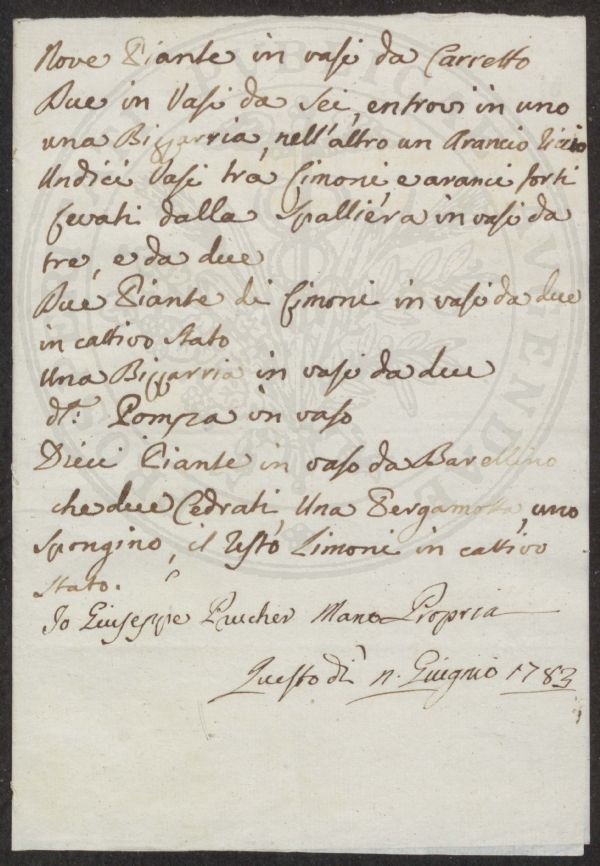 Nove Piante in vasi da Carretto
Due in Vasi da Sei, entrovi in uno
una Bizzarria, nell'altro un Arancio
Undici Vasi tra Limoni, e aranci forti
Levati dalla Spalliera in vasi da
tre, e da due
Due Piante di Limoni in vasi da due
in cattivo stato
Una Bizzarria in vasi da due
d.ª Pompra in vaso
Dieci Piante in vaso da Barellino
che due Cedrati, Una Pergamotta, uno
Spongino, il resto Limoni in cattivo
stato.
Io Giuseppe Mano Propria
Questo dì 11. Giugno 1783